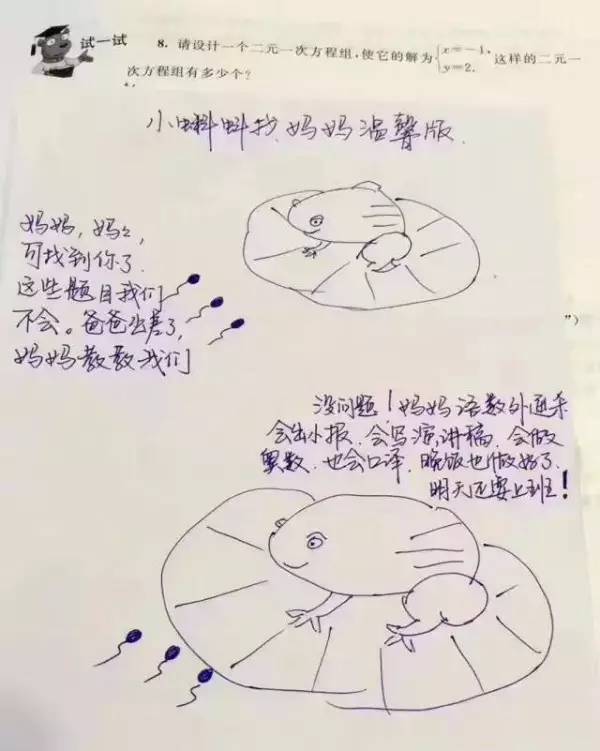 试一试 8. 请设计一个二元一次方程组,使它的解为{x=-1, y=2. 这样的二元一
次方程组有多少个?
小蝌蚪找妈妈温馨版.
妈妈,妈々,
可找到你了.
这些题目我们
不会。爸爸出差了,
妈妈教教我们
”)
没问题!妈妈语数外通杀
会出小报.会写演讲稿.会做
奥数.也会口译.晚饭也做好了.
明天还要上班!